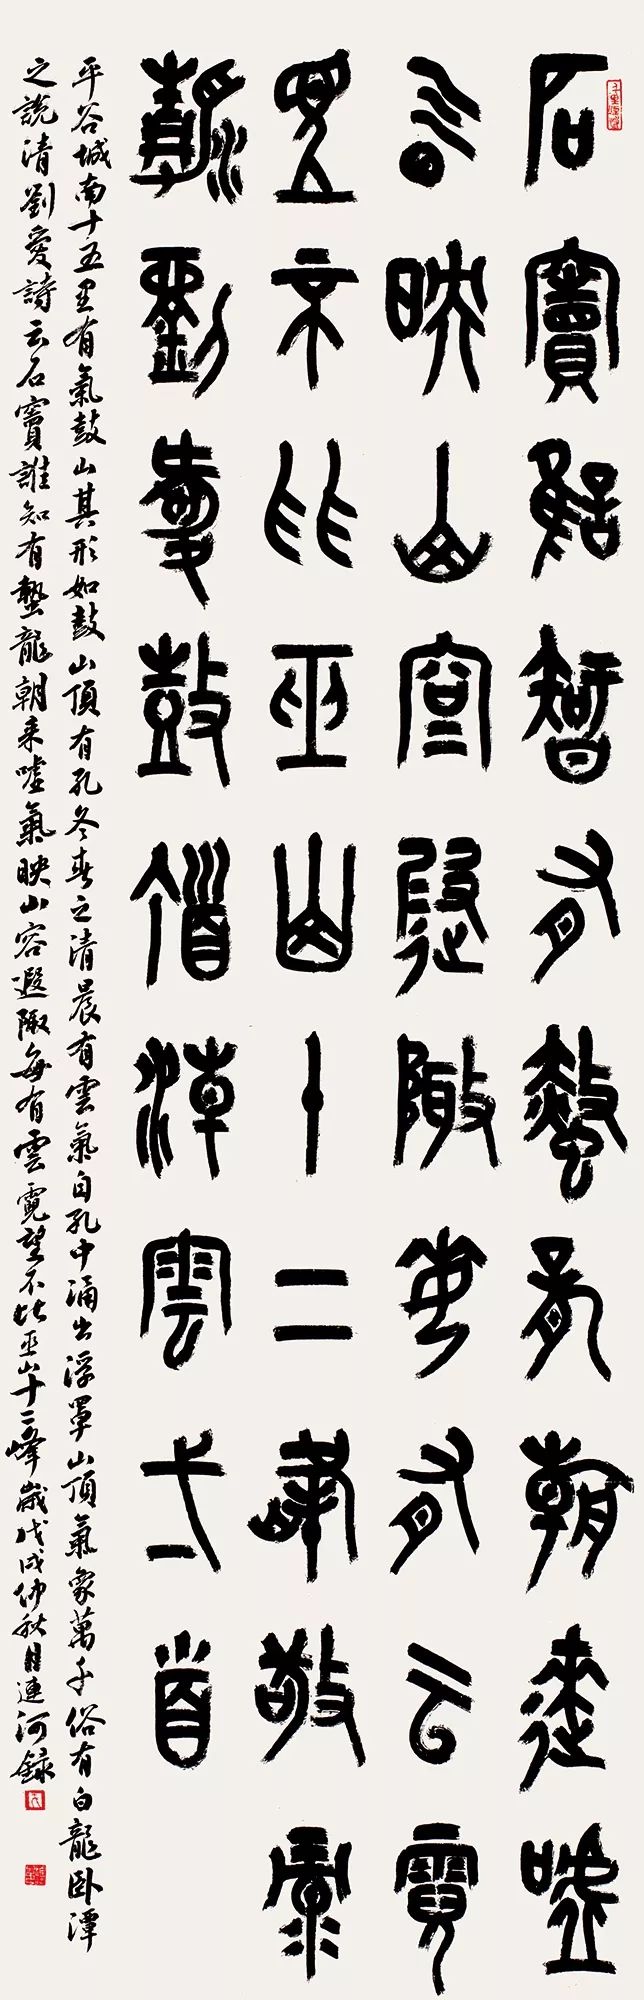 石竇誰知有蟄龍朝來噓
气映山容遐陬每有云霓
望不比巫山十二峰敬录
清劉愛鼓潭雲弌首
平谷城南十五里有氣鼓山其形如鼓山頂有孔冬春之清晨有雲氣自孔中涌出浮罩山頂氣象萬千俗有白龍卧潭
之說清劉愛詩云石竇誰知有蟄龍朝來噓氣映山容遐陬每有雲霓望不比巫山十二峰歲戊戌仲秋月連河錄